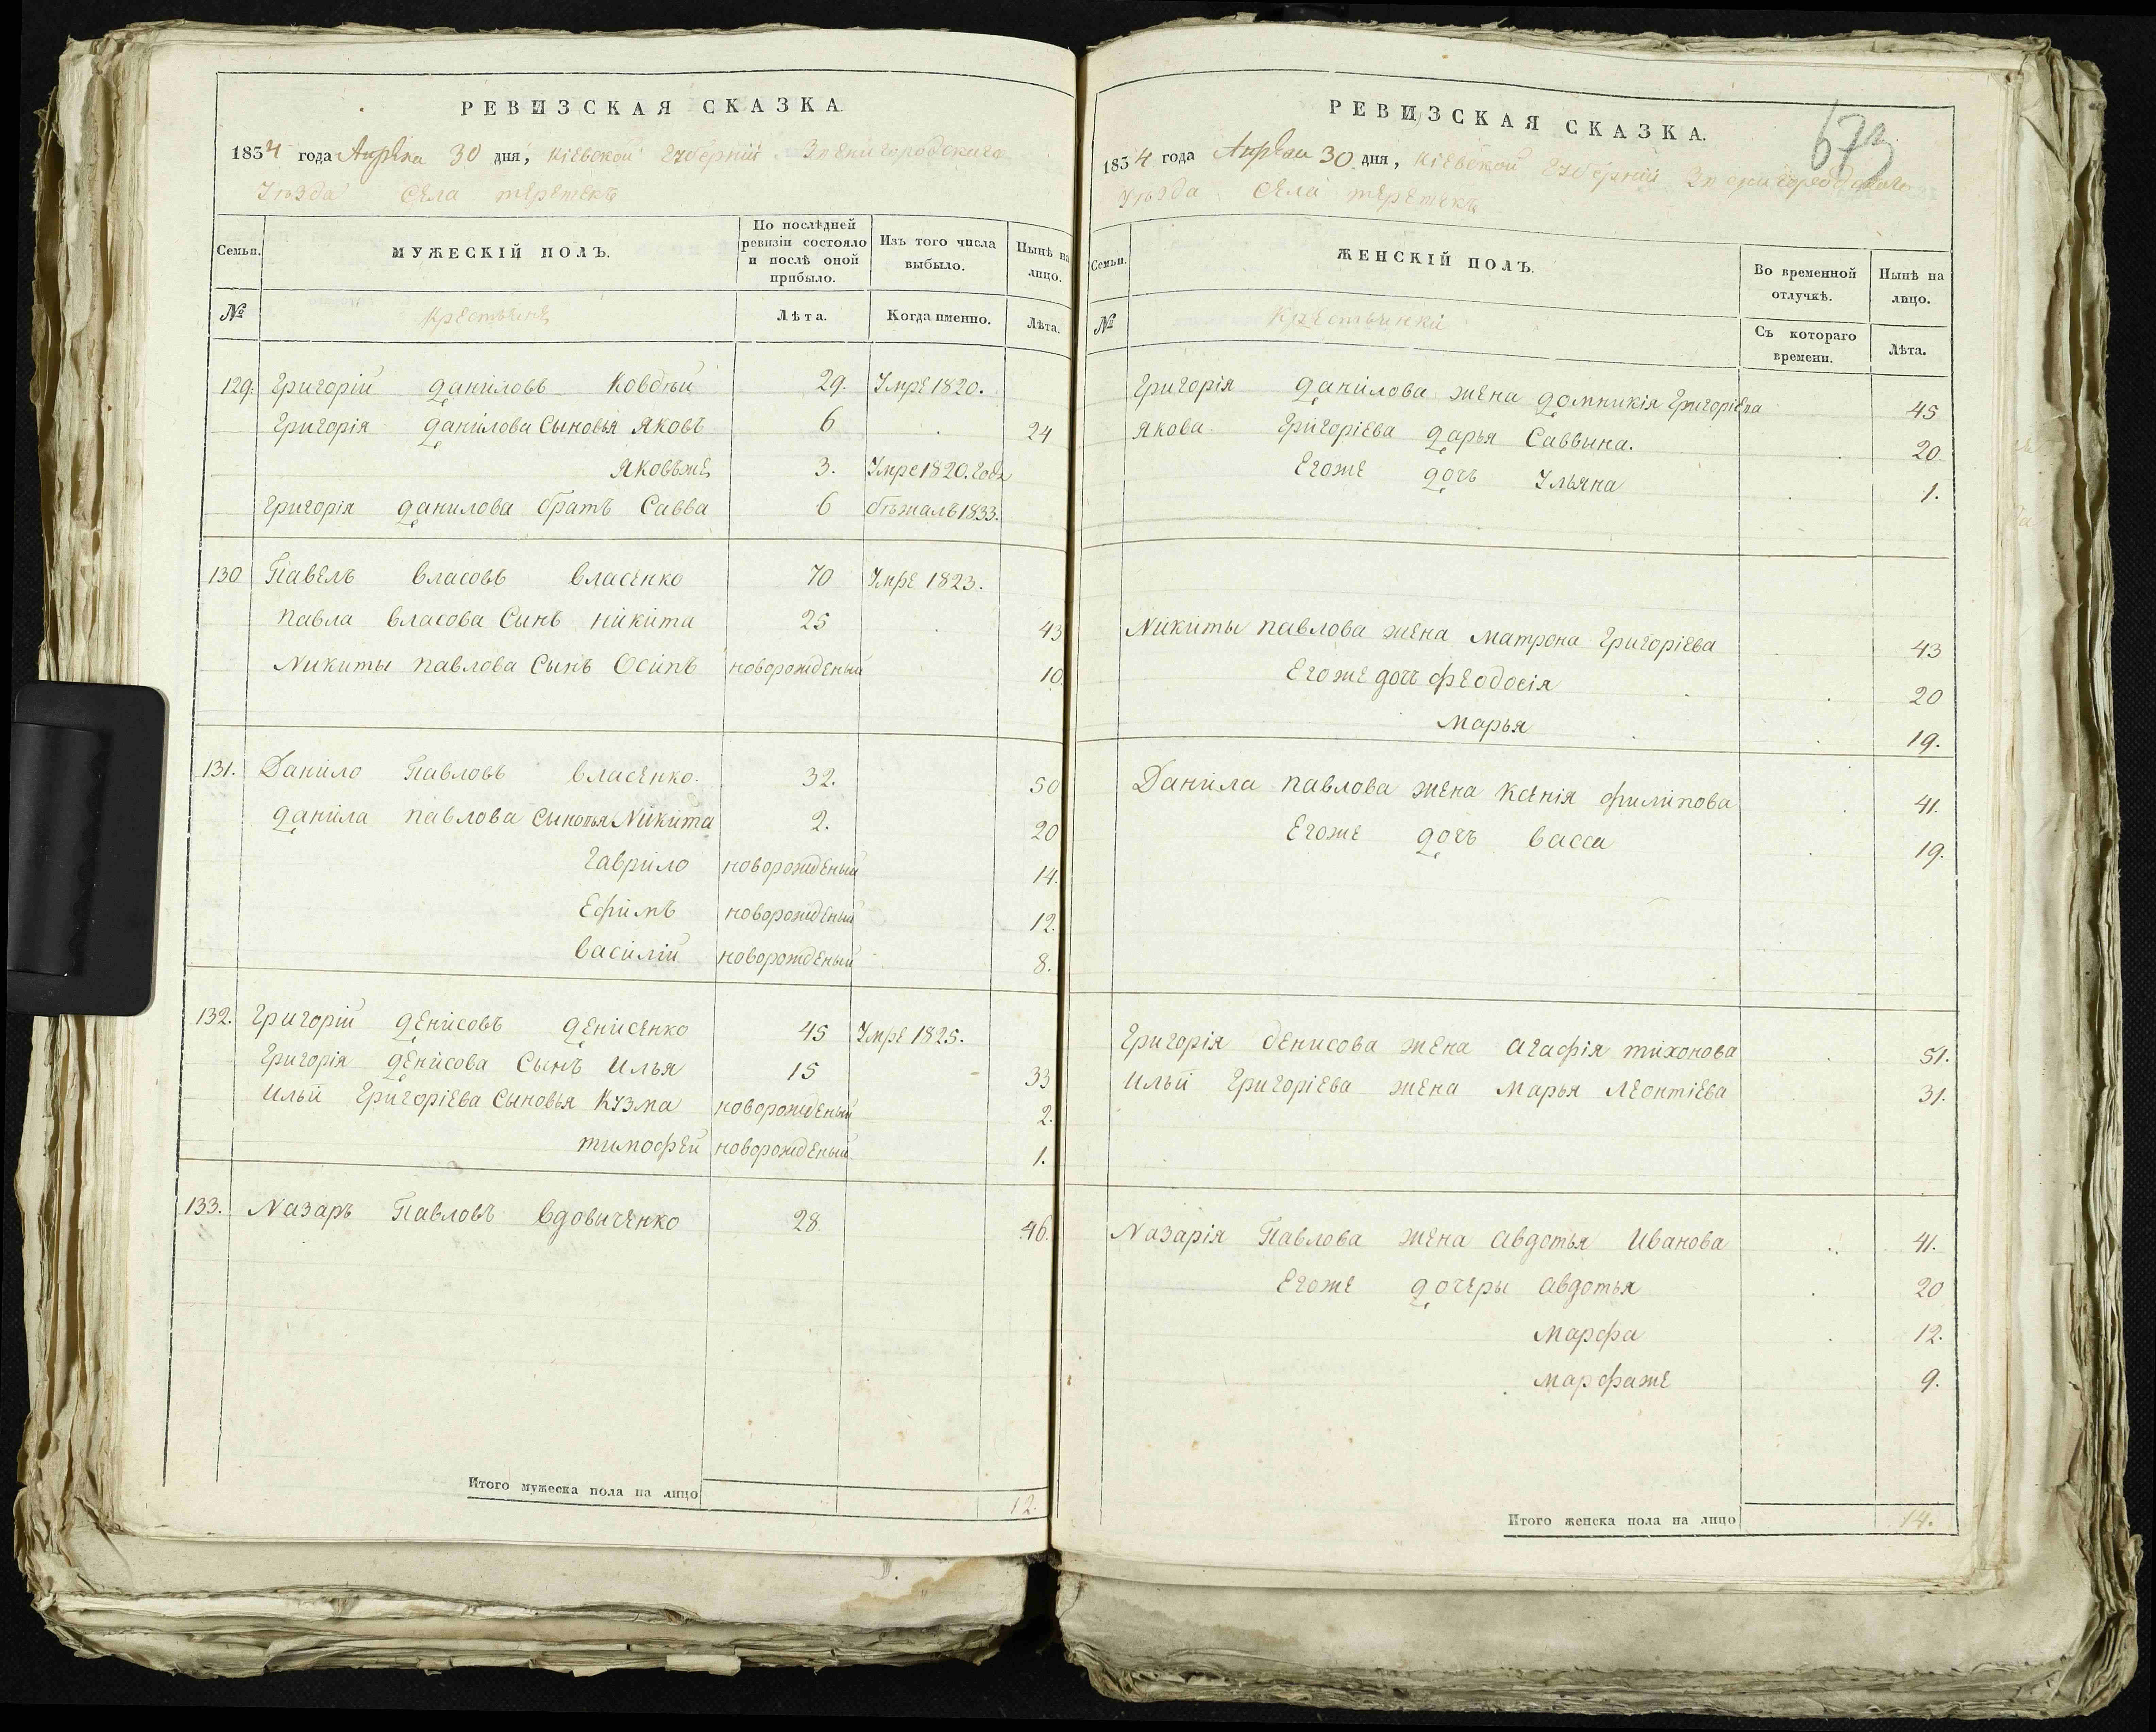 РЕВИЗСКАЯ СКАЗКА.
1834 года Апреля 30 дня, Кіевской Губерніи Звенигородскаго
Уѣзда Села
Семьи.
МУЖЕСКІЙ ПОЛЪ.
По послѣдней
ревизіи состояло
и послѣ оной
прибыло.
Изъ того числа
выбыло.
Нынѣ на
лицо.
№
Крестьяне
Лѣта.
Когда именно.
Лѣта.
129. Григорій Даниловъ 29. Умре 1820.
Григорія Данилова Сыновья Яковъ 6 24
Яковъже 3. Умре 1820. года
Григорія Данилова братъ Савва 6 бѣжалъ 1833.
130 Павелъ Власовъ Власенко 70 Умре 1823.
Павла Власова Сынъ Никита 25 43
Никиты Павлова Сынъ Осипъ новорожденый 10.
131. Данило Павловъ Власенко. 32. 50
Данила Павлова Сыновья Никита 2. 20
Гаврило новорожденый 14.
Ефимъ новорожденый 12.
Василій новорожденый 8.
132. Григорій Денисовъ Денисенко 45 Умре 1825.
Григорія Денисова Сынъ Илья 15 33
Ильи Григоріева Сыновья Кузма новорожденый 2.
Тимофей новорожденый 1.
133. Назаръ Павловъ Вдовиченко 28. 46.
Итого мужеска пола на лицо 12.
РЕВИЗСКАЯ СКАЗКА.
673
1834 года Апреля 30 дня, Кіевской Губерніи Звенигородскаго
Уѣзда Села
Семьи.
ЖЕНСКІЙ ПОЛЪ.
Во временной
отлучкѣ.
Нынѣ на
лицо.
№
Крестьянки
Съ котораго
времени.
Лѣта.
Григорія Данилова жена Домникія Григоріева 45
Якова Григоріева Дарья Саввина. 20
Егоже дочь Ульяна 1.
Никиты Павлова жена Матрона Григоріева 43
Егоже доч Феодосія 20
Марья 19.
Данила Павлова жена Ксенія Филипова 41.
Егоже дочь Васса 19.
Григорія Денисова жена Агафія Тихонова 51.
Ильи Григоріева жена Марья Леонтіева 31.
Назарія Павлова жена Авдотья Иванова 41.
Егоже дочеры Авдотья 20
Марфа 12.
Марфаже 9.
Итого женска пола на лицо 14.